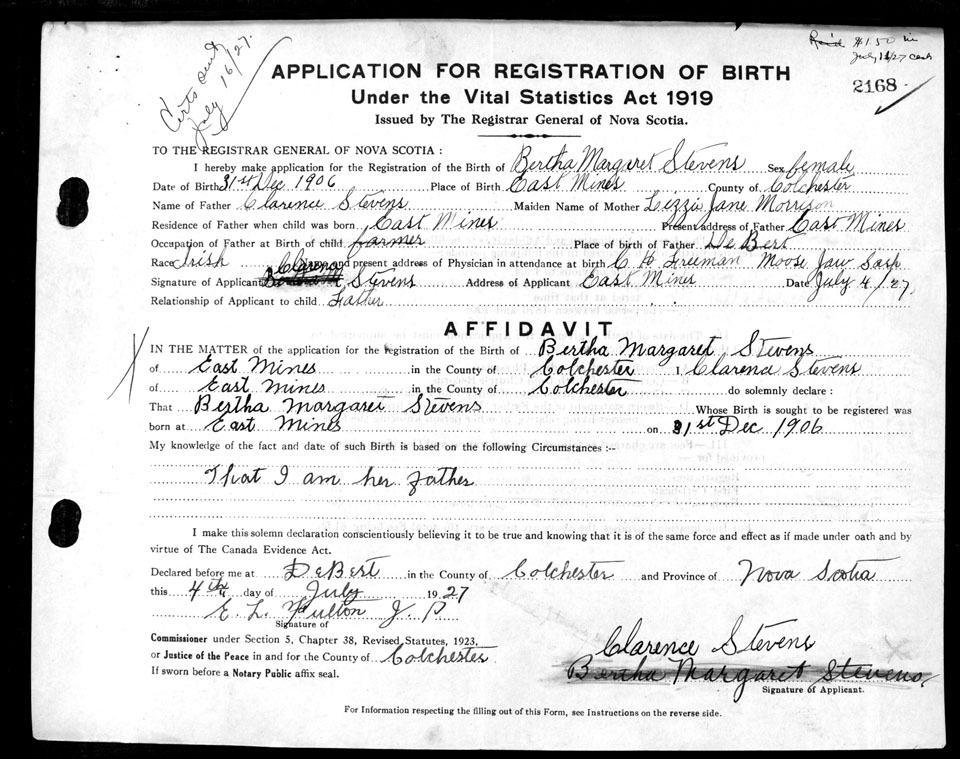 Certs sent
July 16/27.
Rec'd $1.50 in
July 16/27 cash
APPLICATION FOR REGISTRATION OF BIRTH
2168
Under the Vital Statistics Act 1919
Issued by The Registrar General of Nova Scotia.
TO THE REGISTRAR GENERAL OF NOVA SCOTIA :
I hereby make application for the Registration of the Birth of Bertha Margaret Stevens Sex female
Date of Birth 31st Dec 1906 Place of Birth East Mines County of Colchester
Name of Father Clarence Stevens Maiden Name of Mother Lizzie Jane Morrison
Residence of Father when child was born East Mines Present address of Father East Mines
Occupation of Father at Birth of child farmer Place of birth of Father DeBert
Race Irish Name and present address of Physician in attendance at birth C H Freeman Moose Jaw Sask
Signature of Applicant Clarence Stevens Address of Applicant East Mines Date July 4/27.
Relationship of Applicant to child Father
AFFIDAVIT
IN THE MATTER of the application for the registration of the Birth of Bertha Margaret Stevens
of East Mines in the County of Colchester I Clarence Stevens
of East Mines in the County of Colchester do solemnly declare :
That Bertha Margaret Stevens Whose Birth is sought to be registered was
born at East Mines on 31st Dec 1906
My knowledge of the fact and date of such Birth is based on the following Circumstances :--
That I am her father
I make this solemn declaration conscientiously believing it to be true and knowing that it is of the same force and effect as if made under oath and by
virtue of The Canada Evidence Act.
Declared before me at DeBert in the County of Colchester and Province of Nova Scotia
this 4th day of July 1927
E. L. Fulton J. P
Signature of
Commissioner under Section 5, Chapter 38, Revised Statutes, 1923,
or Justice of the Peace in and for the County of Colchester
If sworn before a Notary Public affix seal.
Clarence Stevens
Bertha Margaret Stevens.
Signature of Applicant.
For Information respecting the filling out of this Form, see Instructions on the reverse side.